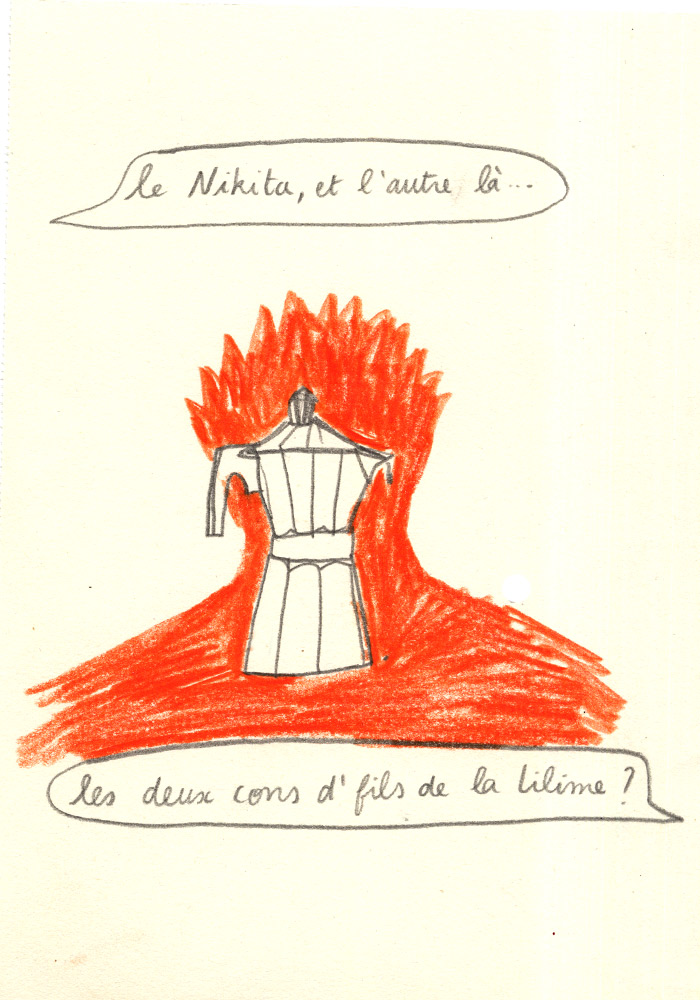 le Nikita, et l'autre là...
les deux cons d'fils de la Lilime ?